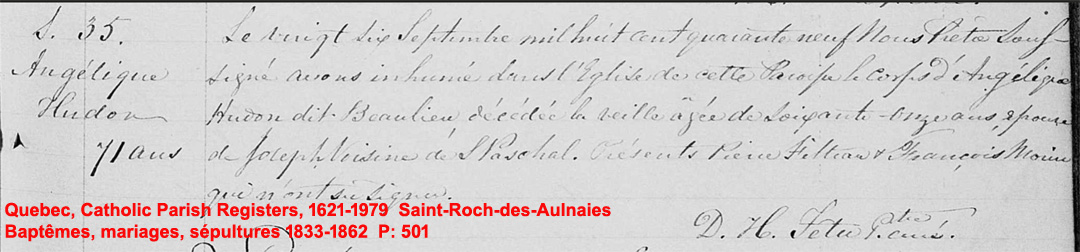 S. 35.
Angélique
Hudon
71 ans
Le vingt six Septembre mil huit cent quarante neuf Nous Prêtre Sous-
signé avons inhumé dans l'Eglise de cette Paroisse le corps d'Angélique
Hudon dit Beaulieu décédée la veille âgée de Soixante-Onze ans, épouse
de Joseph Voisine de St Paschal. Présents Pierre Filteau & François Morin
qui n'ont su signer.
D. H. Tetu Ptre Curé.
Quebec, Catholic Parish Registers, 1621-1979 Saint-Roch-des-Aulnaies
Baptêmes, mariages, sépultures 1833-1862 P: 501